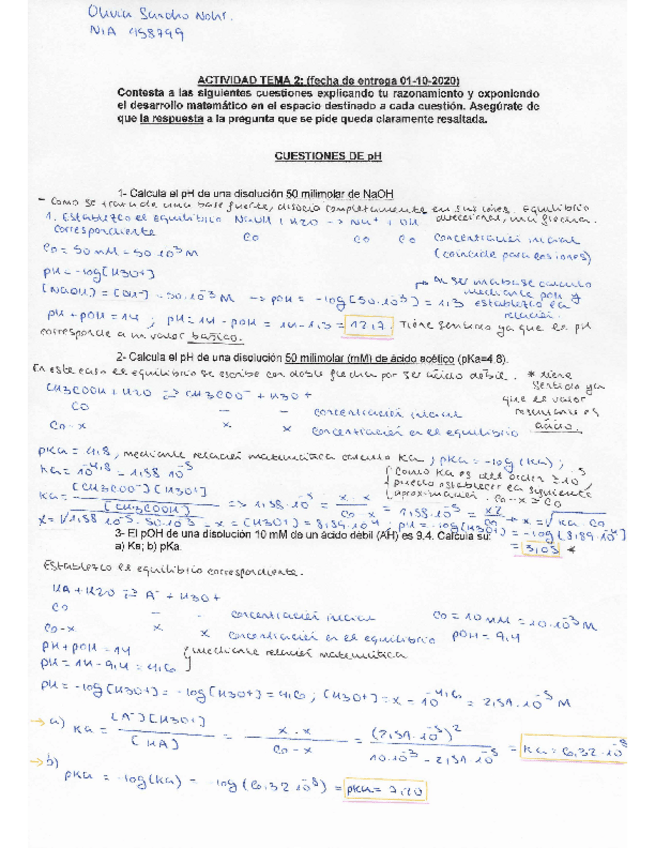 Olivia Sancho Nohr.
NIA 458799
ACTIVIDAD TEMA 2: (fecha de entrega 01-10-2020)
Contesta a las siguientes cuestiones explicando tu razonamiento y exponiendo
el desarrollo matemático en el espacio destinado a cada cuestión. Asegúrate de
que la respuesta a la pregunta que se pide queda claramente resaltada.
CUESTIONES DE pH
1- Calcula el pH de una disolución 50 milimolar de NaOH
- Como se trata de una base fuerte, disocio completamente en sus iones. Equilibrio
direccional, una flecha.
1. Establezco el equilibrio NaOH + H2O → Na+ + OH
correspondiente
C0 C0 C0 concentración inicial
(coincide para los iones)
C0 = 50 mM = 50·10⁻³ M
pH = -log[H3O+]
[NaOH] = [OH-] = 50·10⁻³ M → pOH = -log(50·10⁻³) = 1,3
al ser una base calculo
mediante pOH y
establezco la
relación.
pH + pOH = 14 ; pH = 14 - pOH = 14 - 1,3 = 12,7. Tiene sentido ya que el pH
corresponde a un valor básico.
2- Calcula el pH de una disolución 50 milimolar (mM) de ácido acético (pKa=4,8).
En este caso el equilibrio se escribe con doble flecha por ser ácido débil.
* tiene
sentido ya
que el valor
resultante es
ácido.
CH3COOH + H2O ⇌ CH3COO- + H3O+
C0 - - concentración inicial
C0-x x x concentración en el equilibrio
pKa = 4,8, mediante relación matemática calculo Ka; pKa = -log(Ka);
Ka = 10⁻⁴,⁸ = 1,58·10⁻⁵
(Como Ka es del orden ≥10⁻⁵,
puedo establecer la siguiente
aproximación. C0-x ≃ C0
Ka = [CH3COO-][H3O+] / [CH3COOH] => 1,58·10⁻⁵ = x·x / C0-x = 1,58·10⁻⁵ = x² / C0 → x = √Ka·C0
x = √1,58·10⁻⁵·50·10⁻³ = x = [H3O+] = 8,89·10⁻⁴ ; pH = -log[H3O+] = -log(8,89·10⁻⁴)
= 3,05 *
3- El pOH de una disolución 10 mM de un ácido débil (AH) es 9.4. Calcula su:
a) Ka; b) pKa.
Establezco el equilibrio correspondiente.
HA + H2O ⇌ A- + H3O+
C0 - - concentración inicial C0 = 10 mM = 10·10⁻³ M
C0-x x x concentración en el equilibrio pOH = 9,4
pH + pOH = 14 (mediante relación matemática
pH = 14 - 9,4 = 4,6
pH = -log[H3O+] = -log[H3O+] = 4,6 ; [H3O+] = x = 10⁻⁴,⁶ = 2,51·10⁻⁵ M
→ a) Ka = [A-][H3O+] / [HA] = x·x / C0-x = (2,51·10⁻⁵)² / 10·10⁻³ - 2,51·10⁻⁵ = Ka = 6,32·10⁻⁸
→ b)
pKa = -log(Ka) = -log(6,32·10⁻⁸) = pKa = 7,20